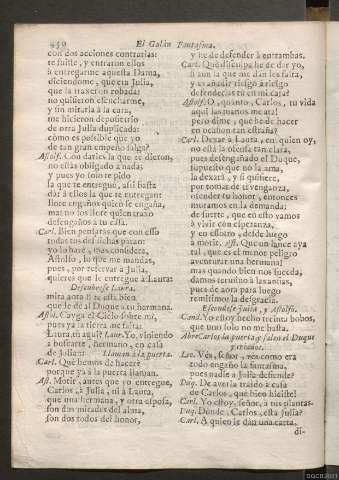 450 El Galàn Fantasma.
con dos acciones contrarias:
te fuiste, y entraron ellos
à entregarme aquesta Dama,
diciendome, que era Julia,
que la traxeron robada:
no quisieron escucharme,
y sin mirarla à la cara,
me hicieron depositario
de otra Julia duplicada:
còmo es possible que yo
de tan grande empeño salga?
Astolf. Con darles la que te dieron,
no estàs obligado à nadas
y pues yo solo te pido
la que te entreguè, assi basta
dàr à ellos la que te entregaron
llore engaños quien se engaña,
mas no los llore quien trata
desengaños à tu casa.
Carl. Bien pensaràs que con esso
todas tus dichas paran:
yo lo harè, mas considera,
Astolfo, lo que me mandas,
pues, por reservar à Julia,
quieres que le entregue à Laura:
Descubrese Laura.
mira aora si te està bien
que le dè al Duque à tu hermana.
Astol. Cayga el Cielo sobre mi,
pues ya la tierra me falta:
Laura, tu aqui? Laur. Yo, viniendo
à buscarte, hermano, en casa
de Julia: Llaman à la puerta.
Carl. Què hemos de hacer?
porque ya à la puerta llaman.
Ast. Morir, antes que yo entregue,
Carlos, à Julia, ni à Laura,
que una hermana, y otra esposa,
son dos mitades del alma,
son dos todos del honor,
y he de defender à entrambas.
Carl. Què assi culpa he de dàr yo,
si aun la que me dàn les falta,
y es añadir riesgo à riesgo
defenderlas tu en mi casa?
Astolf. O, quanto, Carlos, tu vida
aqui la riuamos me ata!
pero dime, què he de hacer
en ocasion tan estraña?
Carl. Dexar à Laura, en quien oy,
no està la ofensa tan clara,
pues desengañado el Duque,
supuesto que no la ama,
la dexarà, y si quisiere,
por tomar de ti venganza,
ofender tu honor, entonces
murarnos en la demanda:
de suerte, que en esto vamos
à vivir con esperanza,
y en essotro, desde luego
à morir. Ast. Que un lance aya
tal, que es el menor peligro
aventurar una hermana!
mas quando bien nos suceda,
damos termino à las ansias,
pues de aora para luego
remitimos la desgracia.
Escondese Julia, y Astolfo.
Cand. Yo estoy hecho treinta bobos,
que uno solo no me basta.
Abre Carlos la puerta, y salen el Duque
y criados.
Leo. Vès, señor, vès como era
todo engaño la fantasma,
pues nadie à Julia defiende?
Duq. De averla traido à casa
de Carlos, què bien hiciste!
Carl. Yo estoy, señor, à tus plantas.
Duq. Donde, Carlos, està Julia?
Carl. A quien le dàn una carta,
di-